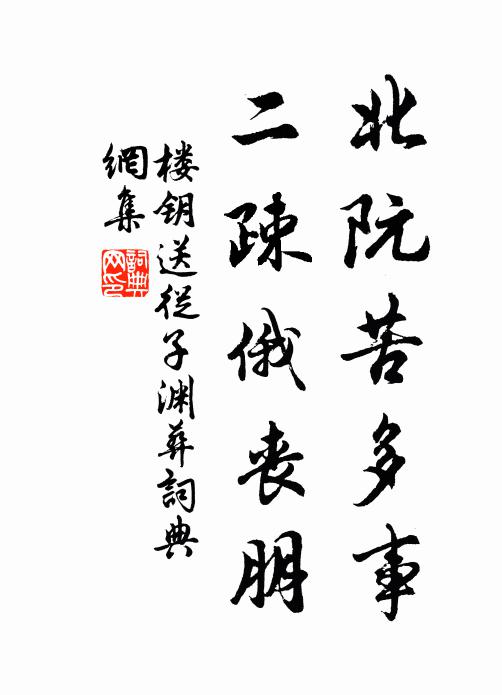 北阮苦多事
二疎俄丧朋
楼钥送從子渊葬詞典
網集
詞典网印